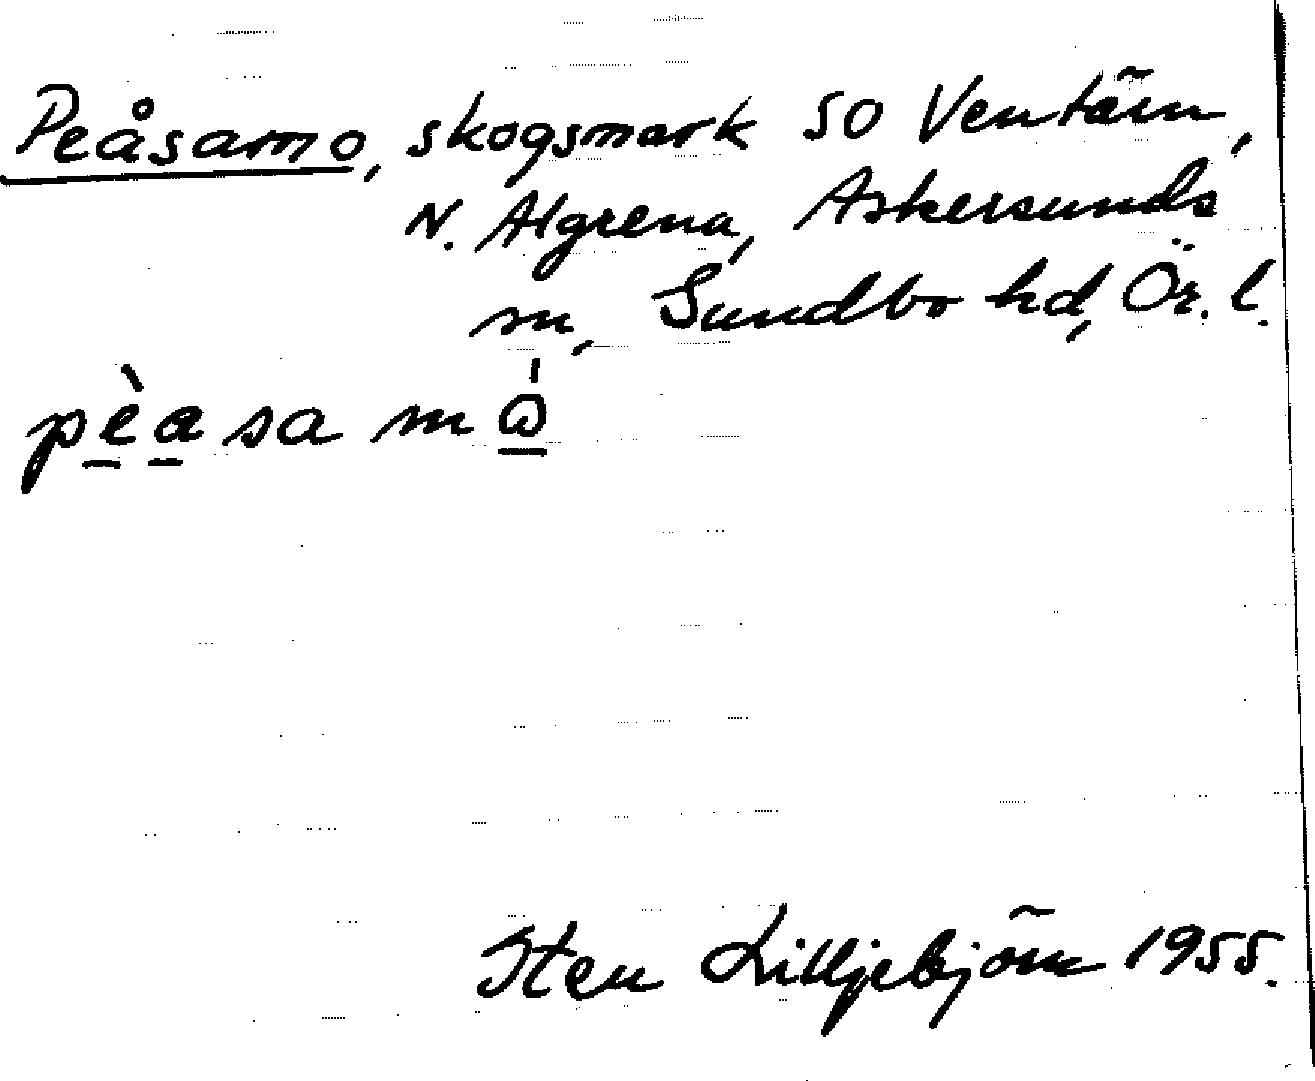 Peåsamo, skogsmark SO Ventärn,
N. Algrena, Askersunds
sn, Sundbo hd, Ör. l.
pèasamɷ̀
Sten Lilljebjörn 1955.